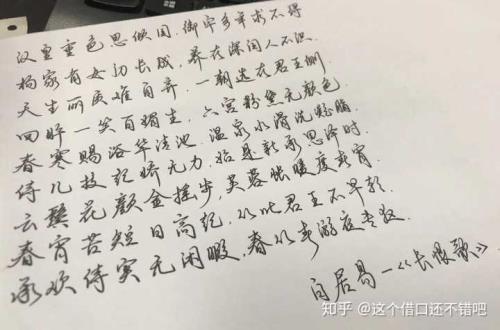 汉皇重色思倾国,御宇多年求不得
杨家有女初长成,养在深闺人不识.
天生丽质难自弃.一朝选在君王侧
回眸一笑百媚生,六宫粉黛无颜色.
春寒赐浴华清池.温泉水滑洗凝脂
侍儿扶起娇无力,始是新承恩泽时.
云鬓花颜金摇步,芙蓉帐暖度春宵.
春宵苦短日高起,从此君王不早朝.
承欢侍宴无闲暇,春从春游夜专夜
白居易-《长恨歌》
知乎 @这个借口还不错吧